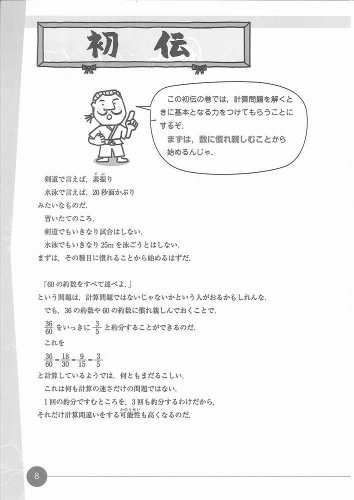 初伝
この初伝の巻では，計算問題を解くと
きに基本となる力をつけてもらうことに
するぞ．
まずは，数に慣れ親しむことから
始めるんじゃ．
剣道で言えば，素振り
水泳で言えば，20秒面かぶり
みたいなものだ．
習いたてのころ，
剣道でもいきなり試合はしない．
水泳でもいきなり25mを泳ごうとはしない．
まずは，その種目に慣れることから始めるはずだ．
「60の約数をすべて述べよ．」
という問題は，計算問題ではないじゃないかという人がおるかもしれんな．
でも，36の約数や60の約数に慣れ親しんでおくことで，
36/60 をいっきに 3/5 と約分することができるのだ．
これを
36/60=18/30=9/15=3/5
と計算しているようでは，何ともまだるこしい．
これは何も計算の速さだけの問題ではない．
1回の約分ですむところを，3回も約分するわけだから，
それだけ計算間違いをする可能性も高くなるのだ．
8